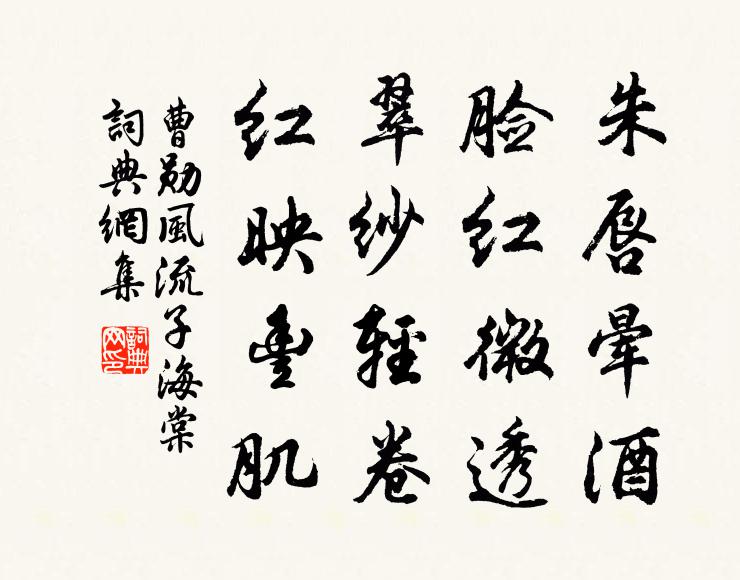 朱唇晕酒
脸红微透
翠纱轻卷
红映丰肌
曹勋風流子海棠
詞典網集
詞典網印